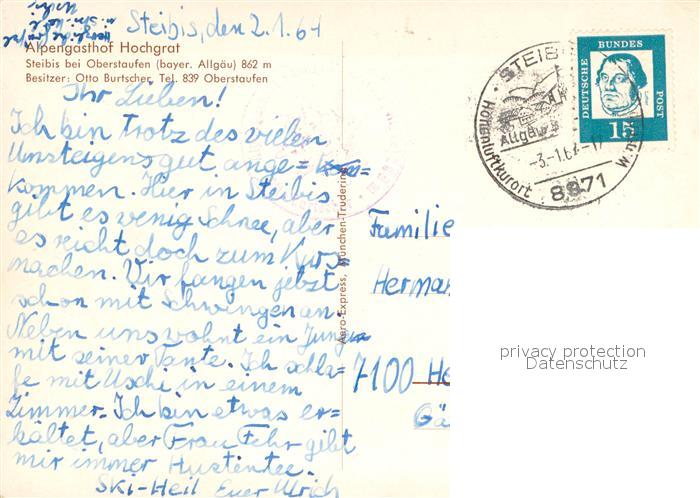 Steibis, den 2.1.64
Alpengasthof Hochgrat
Steibis bei Oberstaufen (bayer. Allgäu) 862 m
Besitzer: Otto Burtscher, Tel. 839 Oberstaufen
Ihr Lieben!
Ich bin trotz des vielen
Umsteigens gut ange=
kommen. Hier in Steibis
gibt es wenig Schnee, aber
es reicht doch zum Kurs
machen. Wir fangen jetzt
schon mit Schwingen an.
Neben uns wohnt ein Junge
mit seiner Tante. Ich schla=
fe mit Uschi in einem
Zimmer. Ich bin etwas er=
kältet, aber Frau Fehr gibt
mir immer Hustentee.
Ski-Heil Euer Ulrich
Aero-Express, München-Trudering
STEIB
Allgäu
Höhenluftkurort
-3.-1.64.-17
8971
DEUTSCHE
BUNDES
POST
15
Familie
Herman
7100 He
Gä
privacy protection
Datenschutz